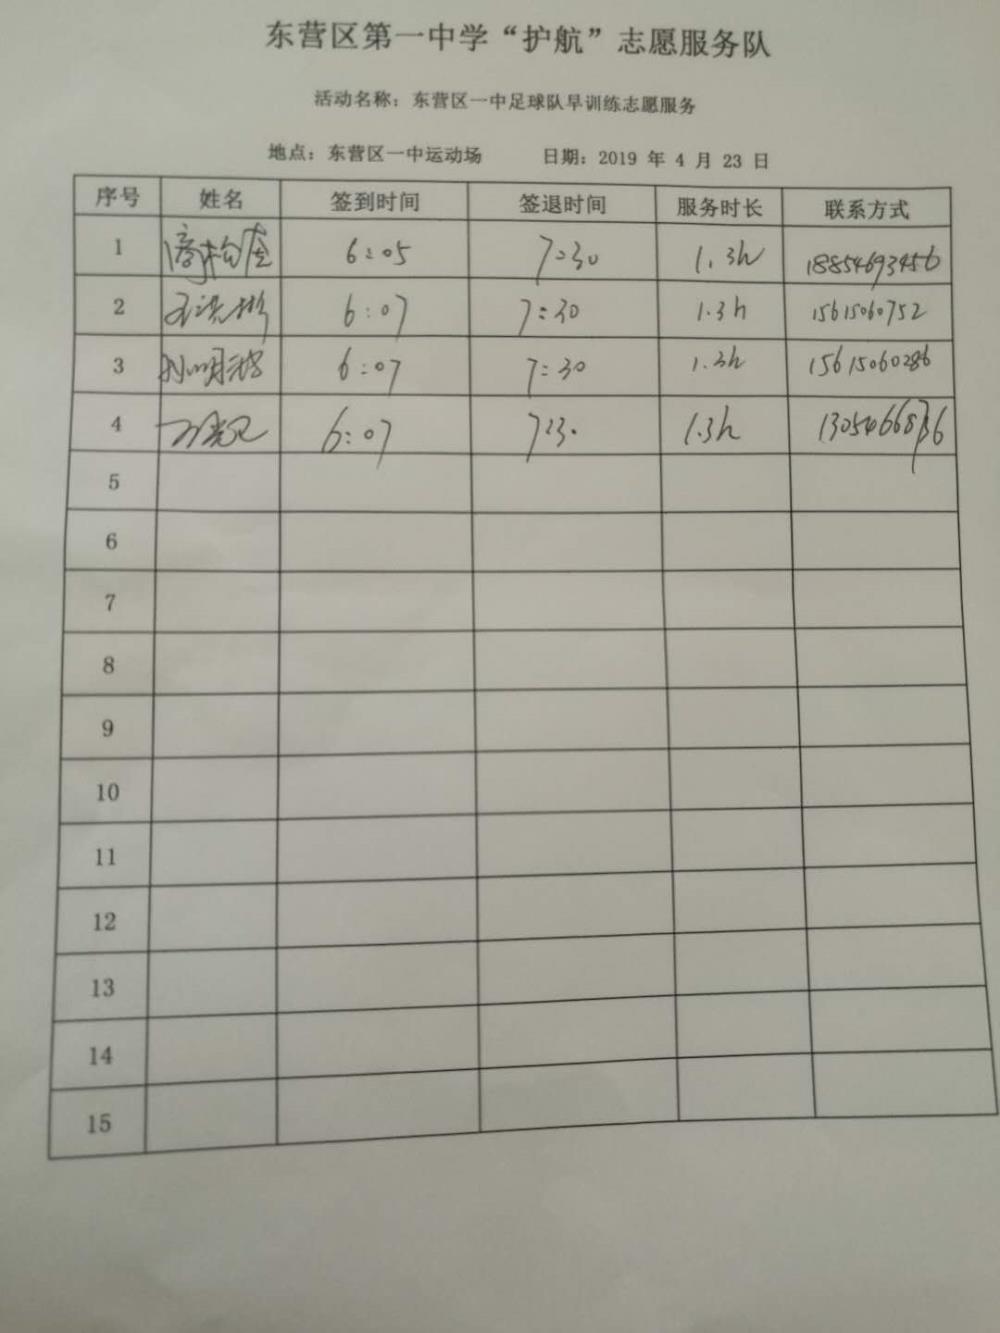 东营区第一中学“护航”志愿服务队
活动名称：东营区一中足球队早训练志愿服务
地点：东营区一中运动场 日期：2019 年 4 月 23 日
序号 姓名 签到时间 签退时间 服务时长 联系方式
1 6:05 7:30 1.3h 18854693456
2 6:07 7:30 1.3h 15615060752
3 6:07 7:30 1.3h 15615060286
4 6:07 7:30 1.3h
5
6
7
8
9
10
11
12
13
14
15